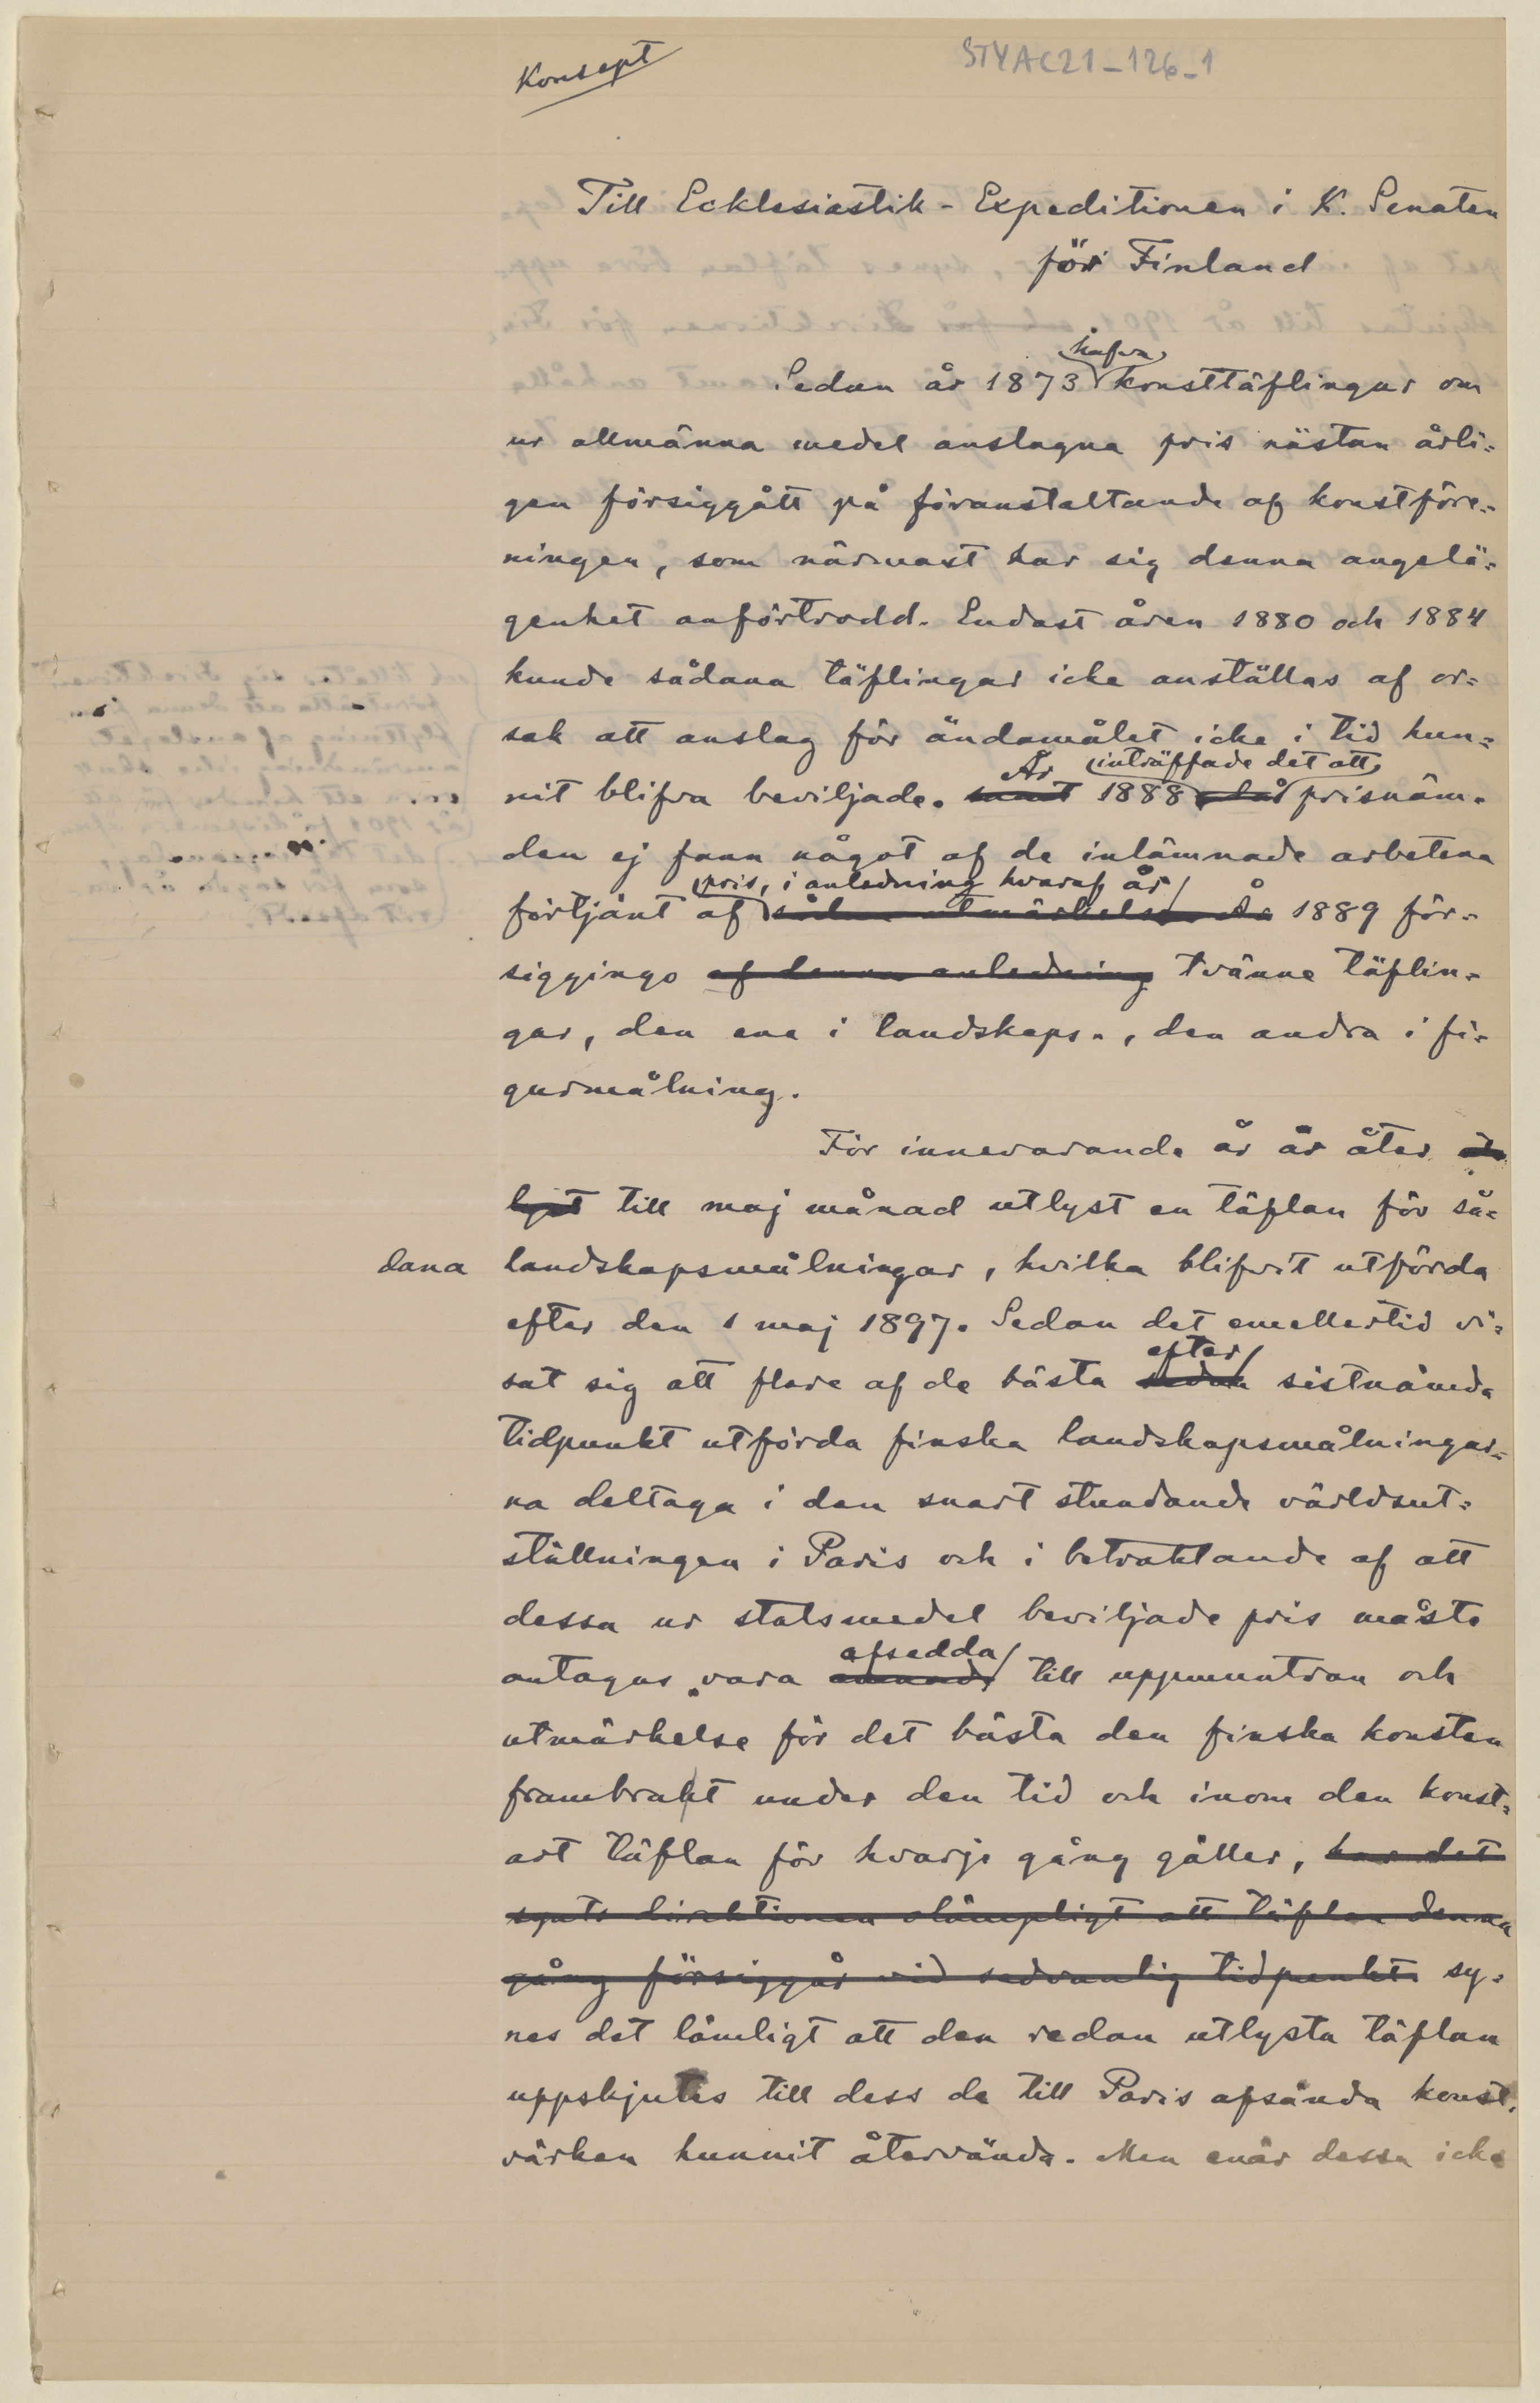 Konsept
STYAC21_126_1
Till Ecklesiastik-Expeditionen i K. Senaten
för Finland
hafva
Sedan år 1873 konsttäflingar om
ur allmänna medel anslagna pris nästan årli=
gen försiggått på föranstaltande af konstföre=
ningen, som närmast har sig denna angelä=
genhet anförtrodd. Endast åren 1880 och 1884
kunde sådana täflingar icke anställas af or=
sak att anslag för ändamålet icke i tid hun=
År inträffade det att
nit blifva beviljade. samt 1888 då prisnäm=
den ej fann något af de inlämnade arbetena
pris, i anledning hvaraf år
förtjänt af sådan utmärkelse. År 1889 för=
siggingo af denna anledning tvänne täflin=
gar, den ena i landskaps-, den andra i fi=
gurmålning.
För innevarande år är åter ut
lyst till maj månad utlyst en täflan för så=
dana landskapsmålningar, hvilka blifvit utförda
efter den 1 maj 1897. Sedan det emellertid vi=
efter
sat sig att flere af de bästa sedan sistnämda
tidpunkt utförda finska landskapsmålningar=
na deltaga i den snart stundande världsut=
ställningen i Paris och i betraktande af att
dessa ur statsmedel beviljade pris måste
afsedda
antagas vara ämnade till uppmuntran och
utmärkelse för det bästa den finska konsten
frambrakt under den tid och inom den konst=
art täflan för hvarje gång gäller, har det
synts direktionen olämpligt att täflan denna
gång försiggår vid sedvanlig tidpunkt. sy=
nes det lämligt att den redan utlysta täflan
uppskjutes till dess de till Paris afsända konst=
värken hunnit återvända. Men enär dessa icke